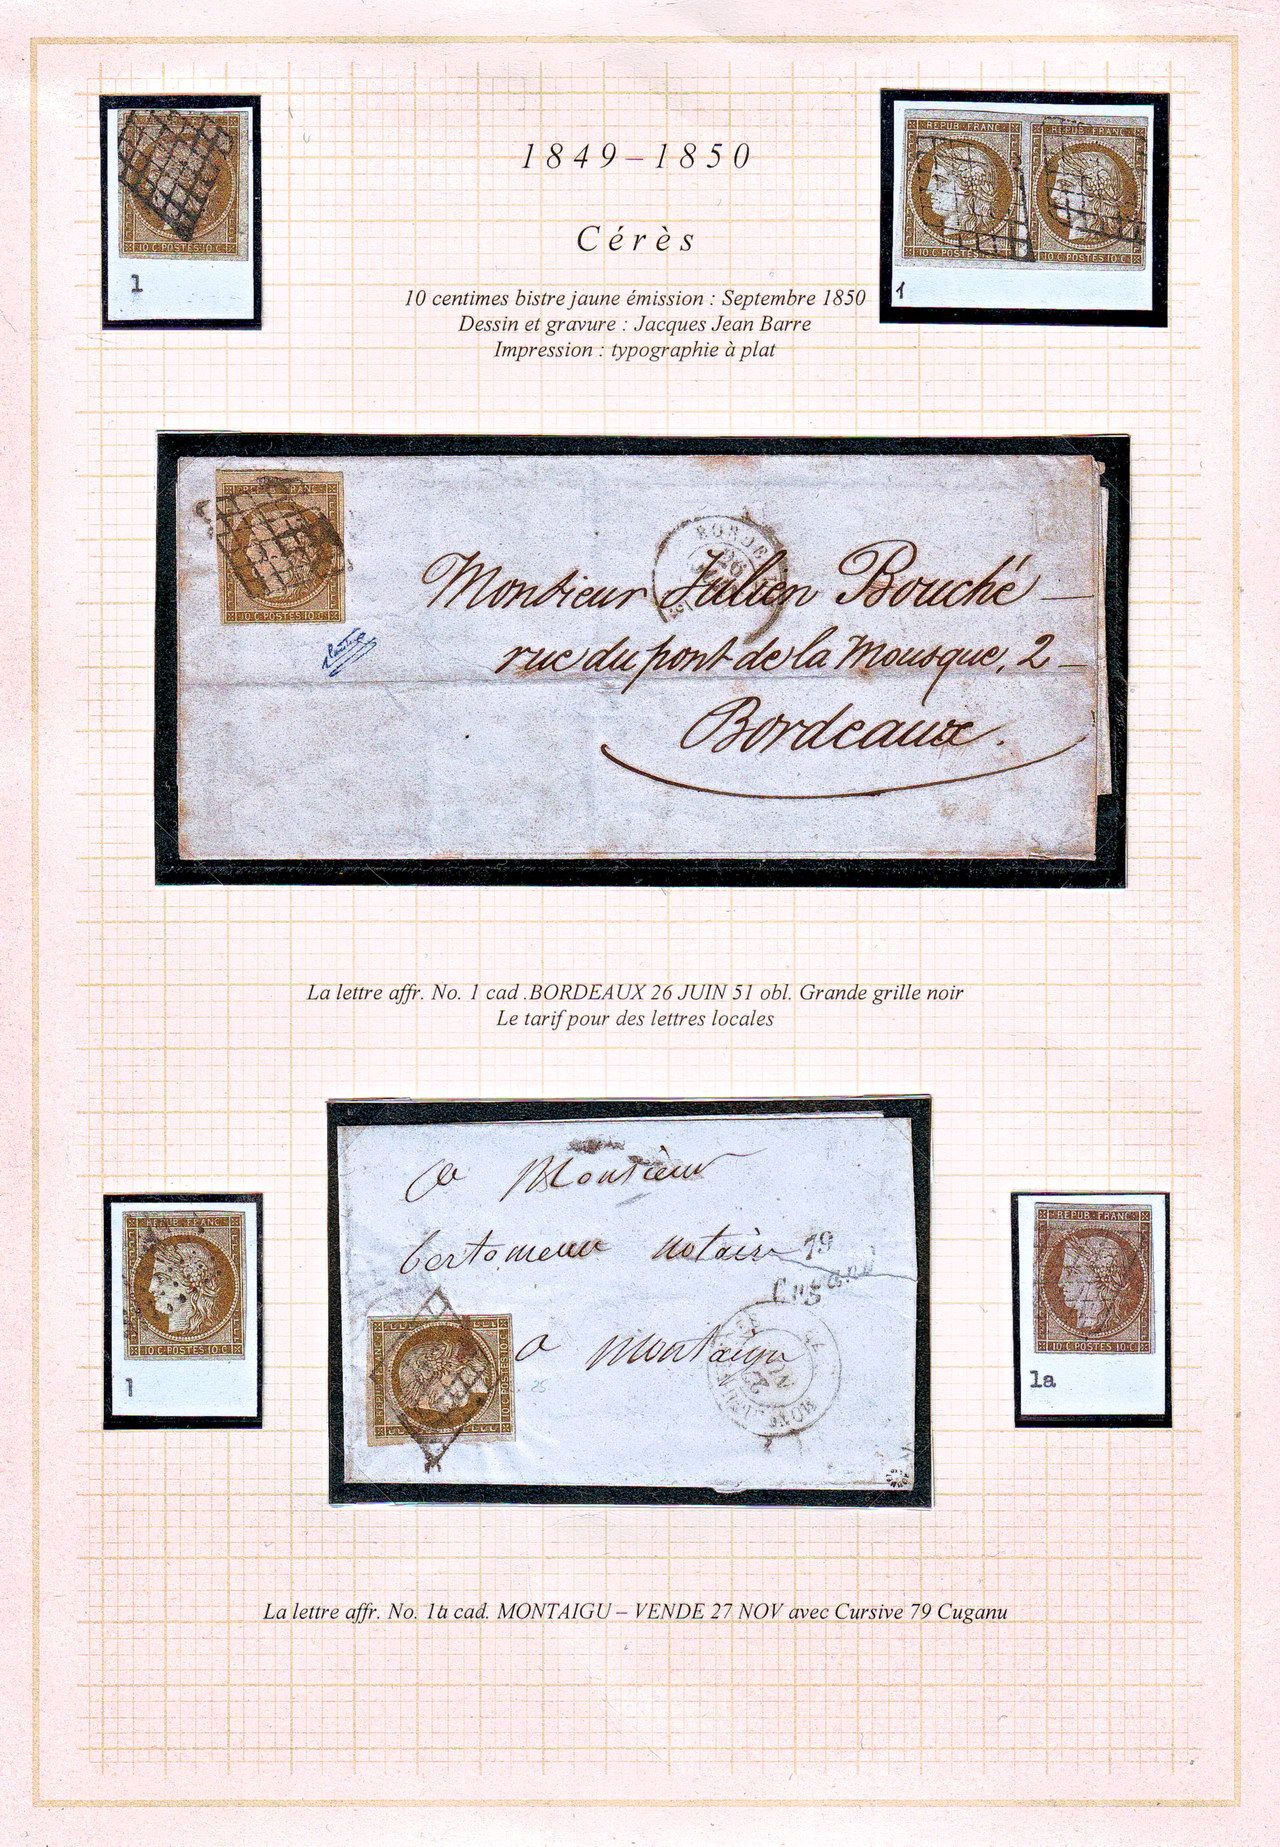 1849–1850
Cérès
10 centimes bistre jaune émission : Septembre 1850
Dessin et gravure : Jacques Jean Barre
Impression : typographie à plat
10 C·POSTES 10 C·
1
REPUB·FRANC·
10 C·POSTES 10 C·
REPUB·FRANC·
10 C·POSTES 10 C·
1
REPUB FRANC
10 C·POSTES 10 C·
BORDE
26
Monsieur Julien Bouché
rue du pont de la Mousque, 2
Bordeaux.
La lettre affr. No. 1 cad .BORDEAUX 26 JUIN 51 obl. Grande grille noir
Le tarif pour des lettres locales
a Monsieur
notaire
79
Cugand
a Montaigu
25
REPUB FRANC·
10 C·POSTES 10 C·
1
REPUB·FRANC·
10 C·POSTES 10 C·
1a
La lettre affr. No. 1a cad. MONTAIGU – VENDE 27 NOV avec Cursive 79 Cuganu